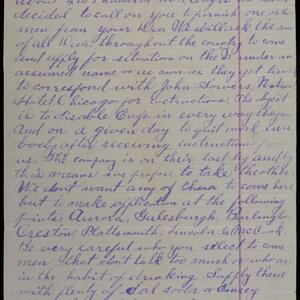 decided to call on you to furnish one or two
men from your Div. We will ask the same
of all Divs. throughout the country to come
and apply for situations on the under an
assumed name as soon as they get here
to correspond with John Sowers, National
Hotel Chicago for instructions. The object
is to disable Eng's in every way they can
And on a given day to quit work in a
body after receiving instructions from
us. The company is on their last leg and by
this means we propose to take the other.
We dont want any of them to come here
but to make application at the following
points Aurora, Galesburgh, Burlington
Creston, Plattsmouth, Lincoln & McCook.
Be very careful who you select to come
men that dont talk too much or who are
in the habit of drinking. Supply them
with plenty of Sal soda &